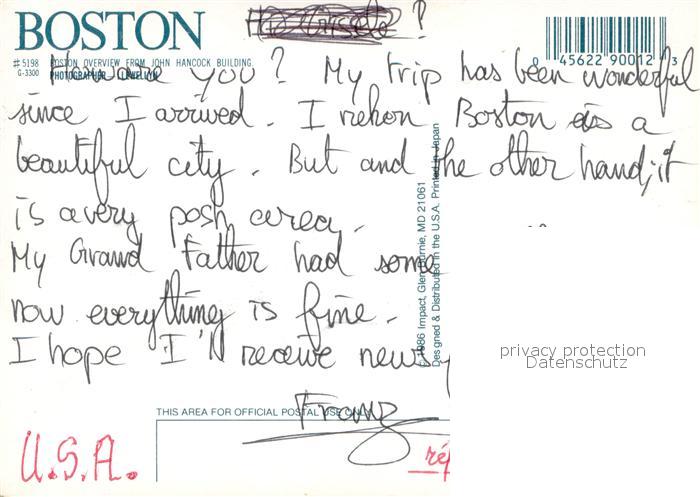 BOSTON
?
# 5198 BOSTON OVERVIEW FROM JOHN HANCOCK BUILDING.
G-3300 PHOTOGRAPHER - LLEWELLYN
0 45622 90012 3
How are you? My trip has been wonderful
since I arrived. I rekon Boston is a
beautiful city. But and the other hand, it
is a very posh area.
My Grand Father had some
now everything is fine.
I hope I'll receive news
Franz
1986 Impact, Glen Burnie, MD 21061
Designed & Distributed in the U.S.A. Printed in Japan
privacy protection
Datenschutz
THIS AREA FOR OFFICIAL POSTAL USE ONLY
U.S.A.